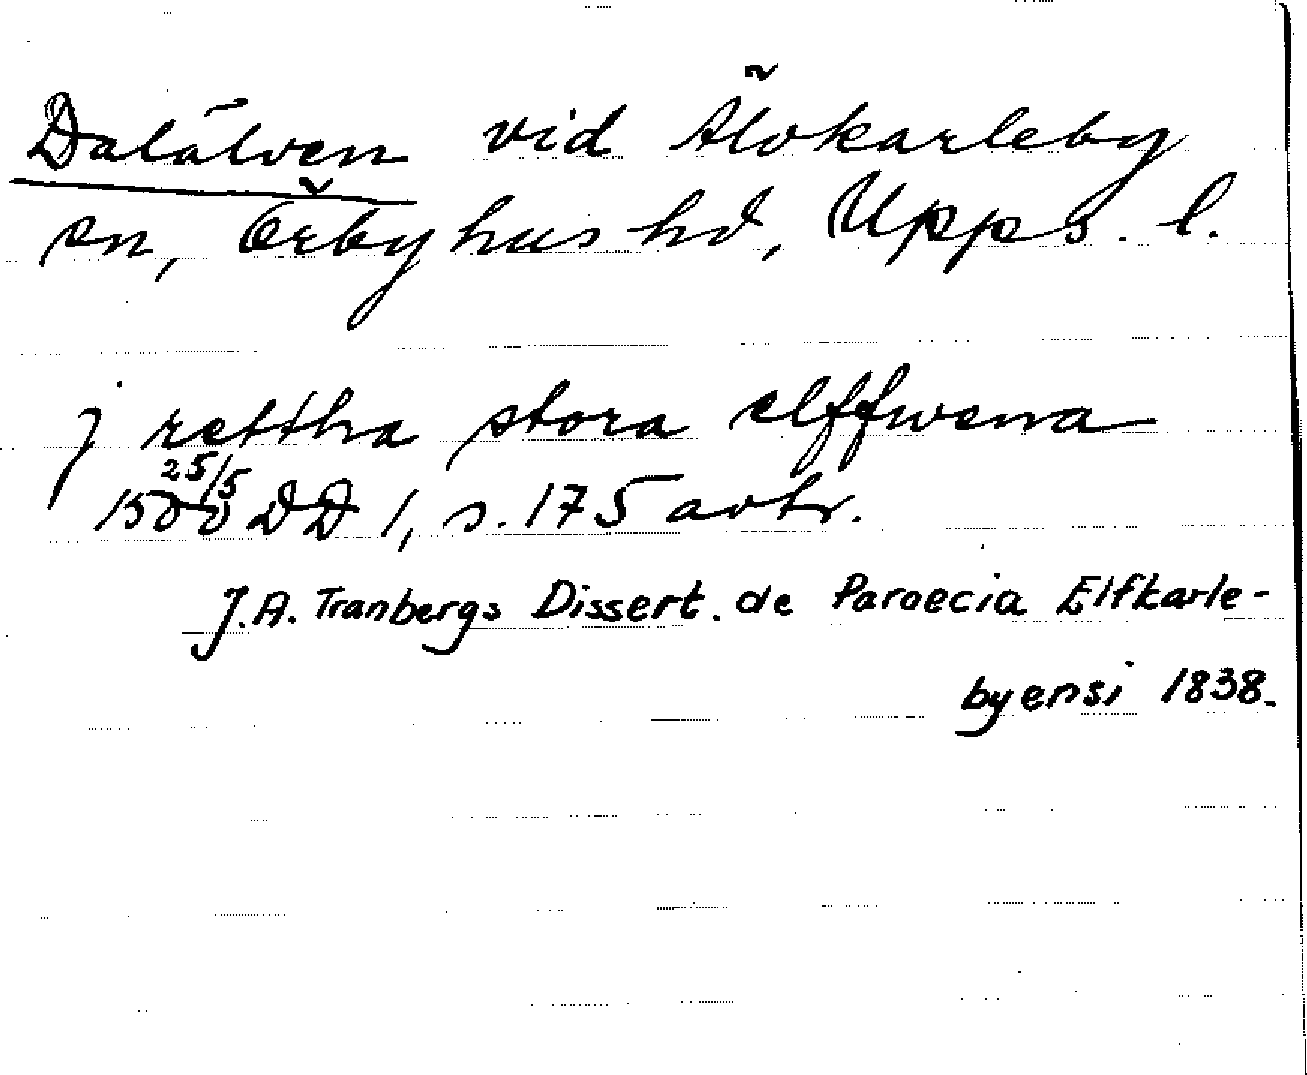 Dalälven vid Älvkarleby
sn, Örbyhus hd, Upps. l.
j rettha stora elffwena
1500 25/5 DD 1, s. 175 avtr.
J.A. Tranbergs Dissert. de Paroecia Elfkarle-
byensi 1838.